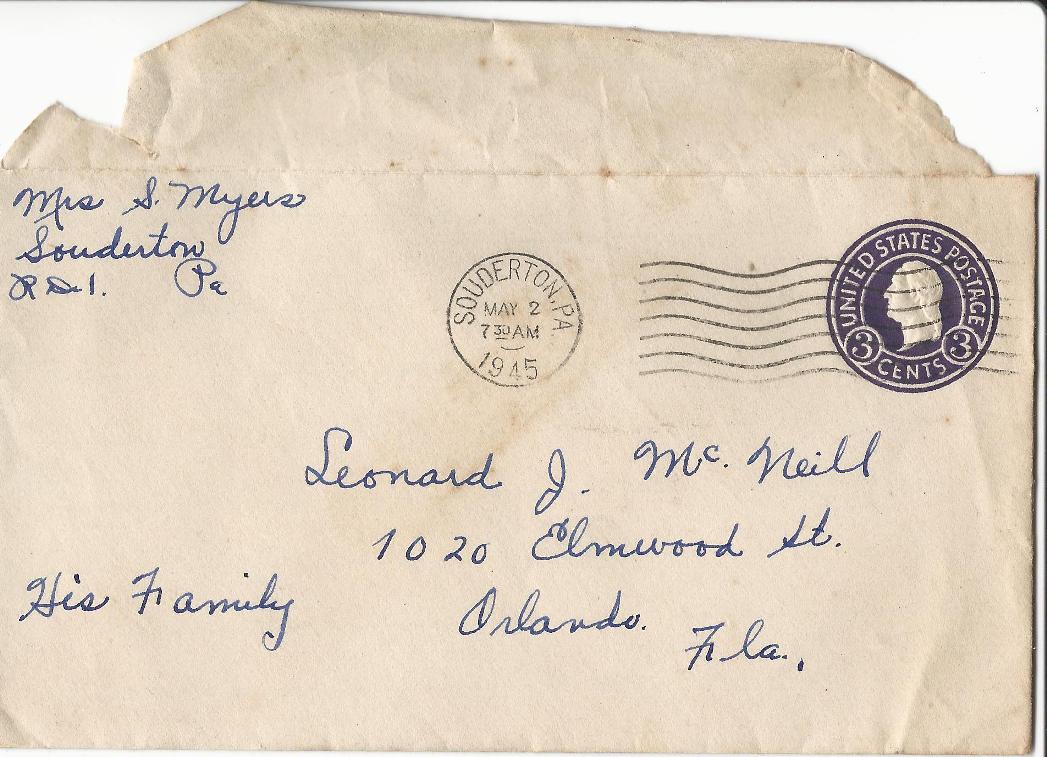 Mrs S. Myers
Souderton
R D. 1. Pa
SOUDERTON, PA
MAY 2
7 30 AM
1945
UNITED STATES POSTAGE
3 CENTS 3
Leonard J. Mc. Neill
1020 Elmwood St.
His Family
Orlando.
Fla.,